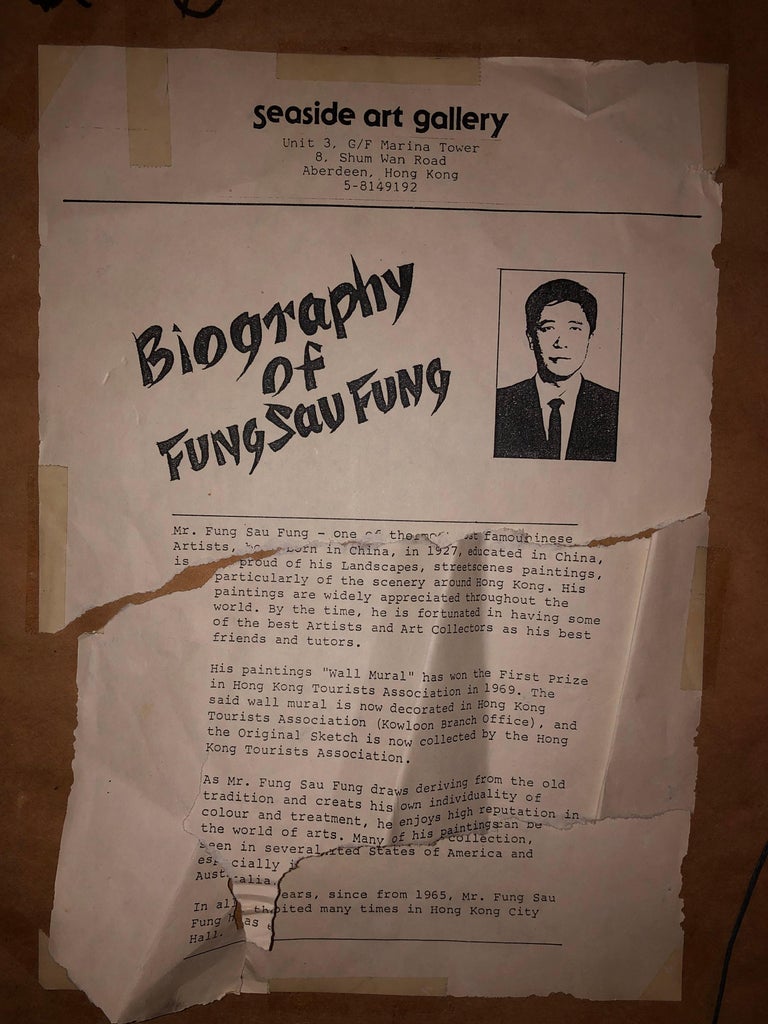 seaside art gallery
Unit 3, G/F Marina Tower
8, Shum Wan Road
Aberdeen, Hong Kong
5-8149192
Biography
of
Fung Sau Fung
Mr. Fung Sau Fung - one of the famou inese
Artists, born in China, in 1927, educated in China,
is proud of his Landscapes, streetscenes paintings,
particularly of the scenery around Hong Kong. His
paintings are widely appreciated throughout the
world. By the time, he is fortunated in having some
of the best Artists and Art Collectors as his best
friends and tutors.
His paintings "Wall Mural" has won the First Prize
in Hong Kong Tourists Association in 1969. The
said wall mural is now decorated in Hong Kong
Tourists Association (Kowloon Branch Office), and
the Original Sketch is now collected by the Hong
Kong Tourists Association.
As Mr. Fung Sau Fung draws deriving from the old
tradition and creats his own individuality of
colour and treatment, he enjoys high reputation in
the world of arts. Many of his paintings can be
seen in several collection,
especially i ted States of America and
Australia.
In all ears, since from 1965, Mr. Fung Sau
Fung has bited many times in Hong Kong City
Hall.